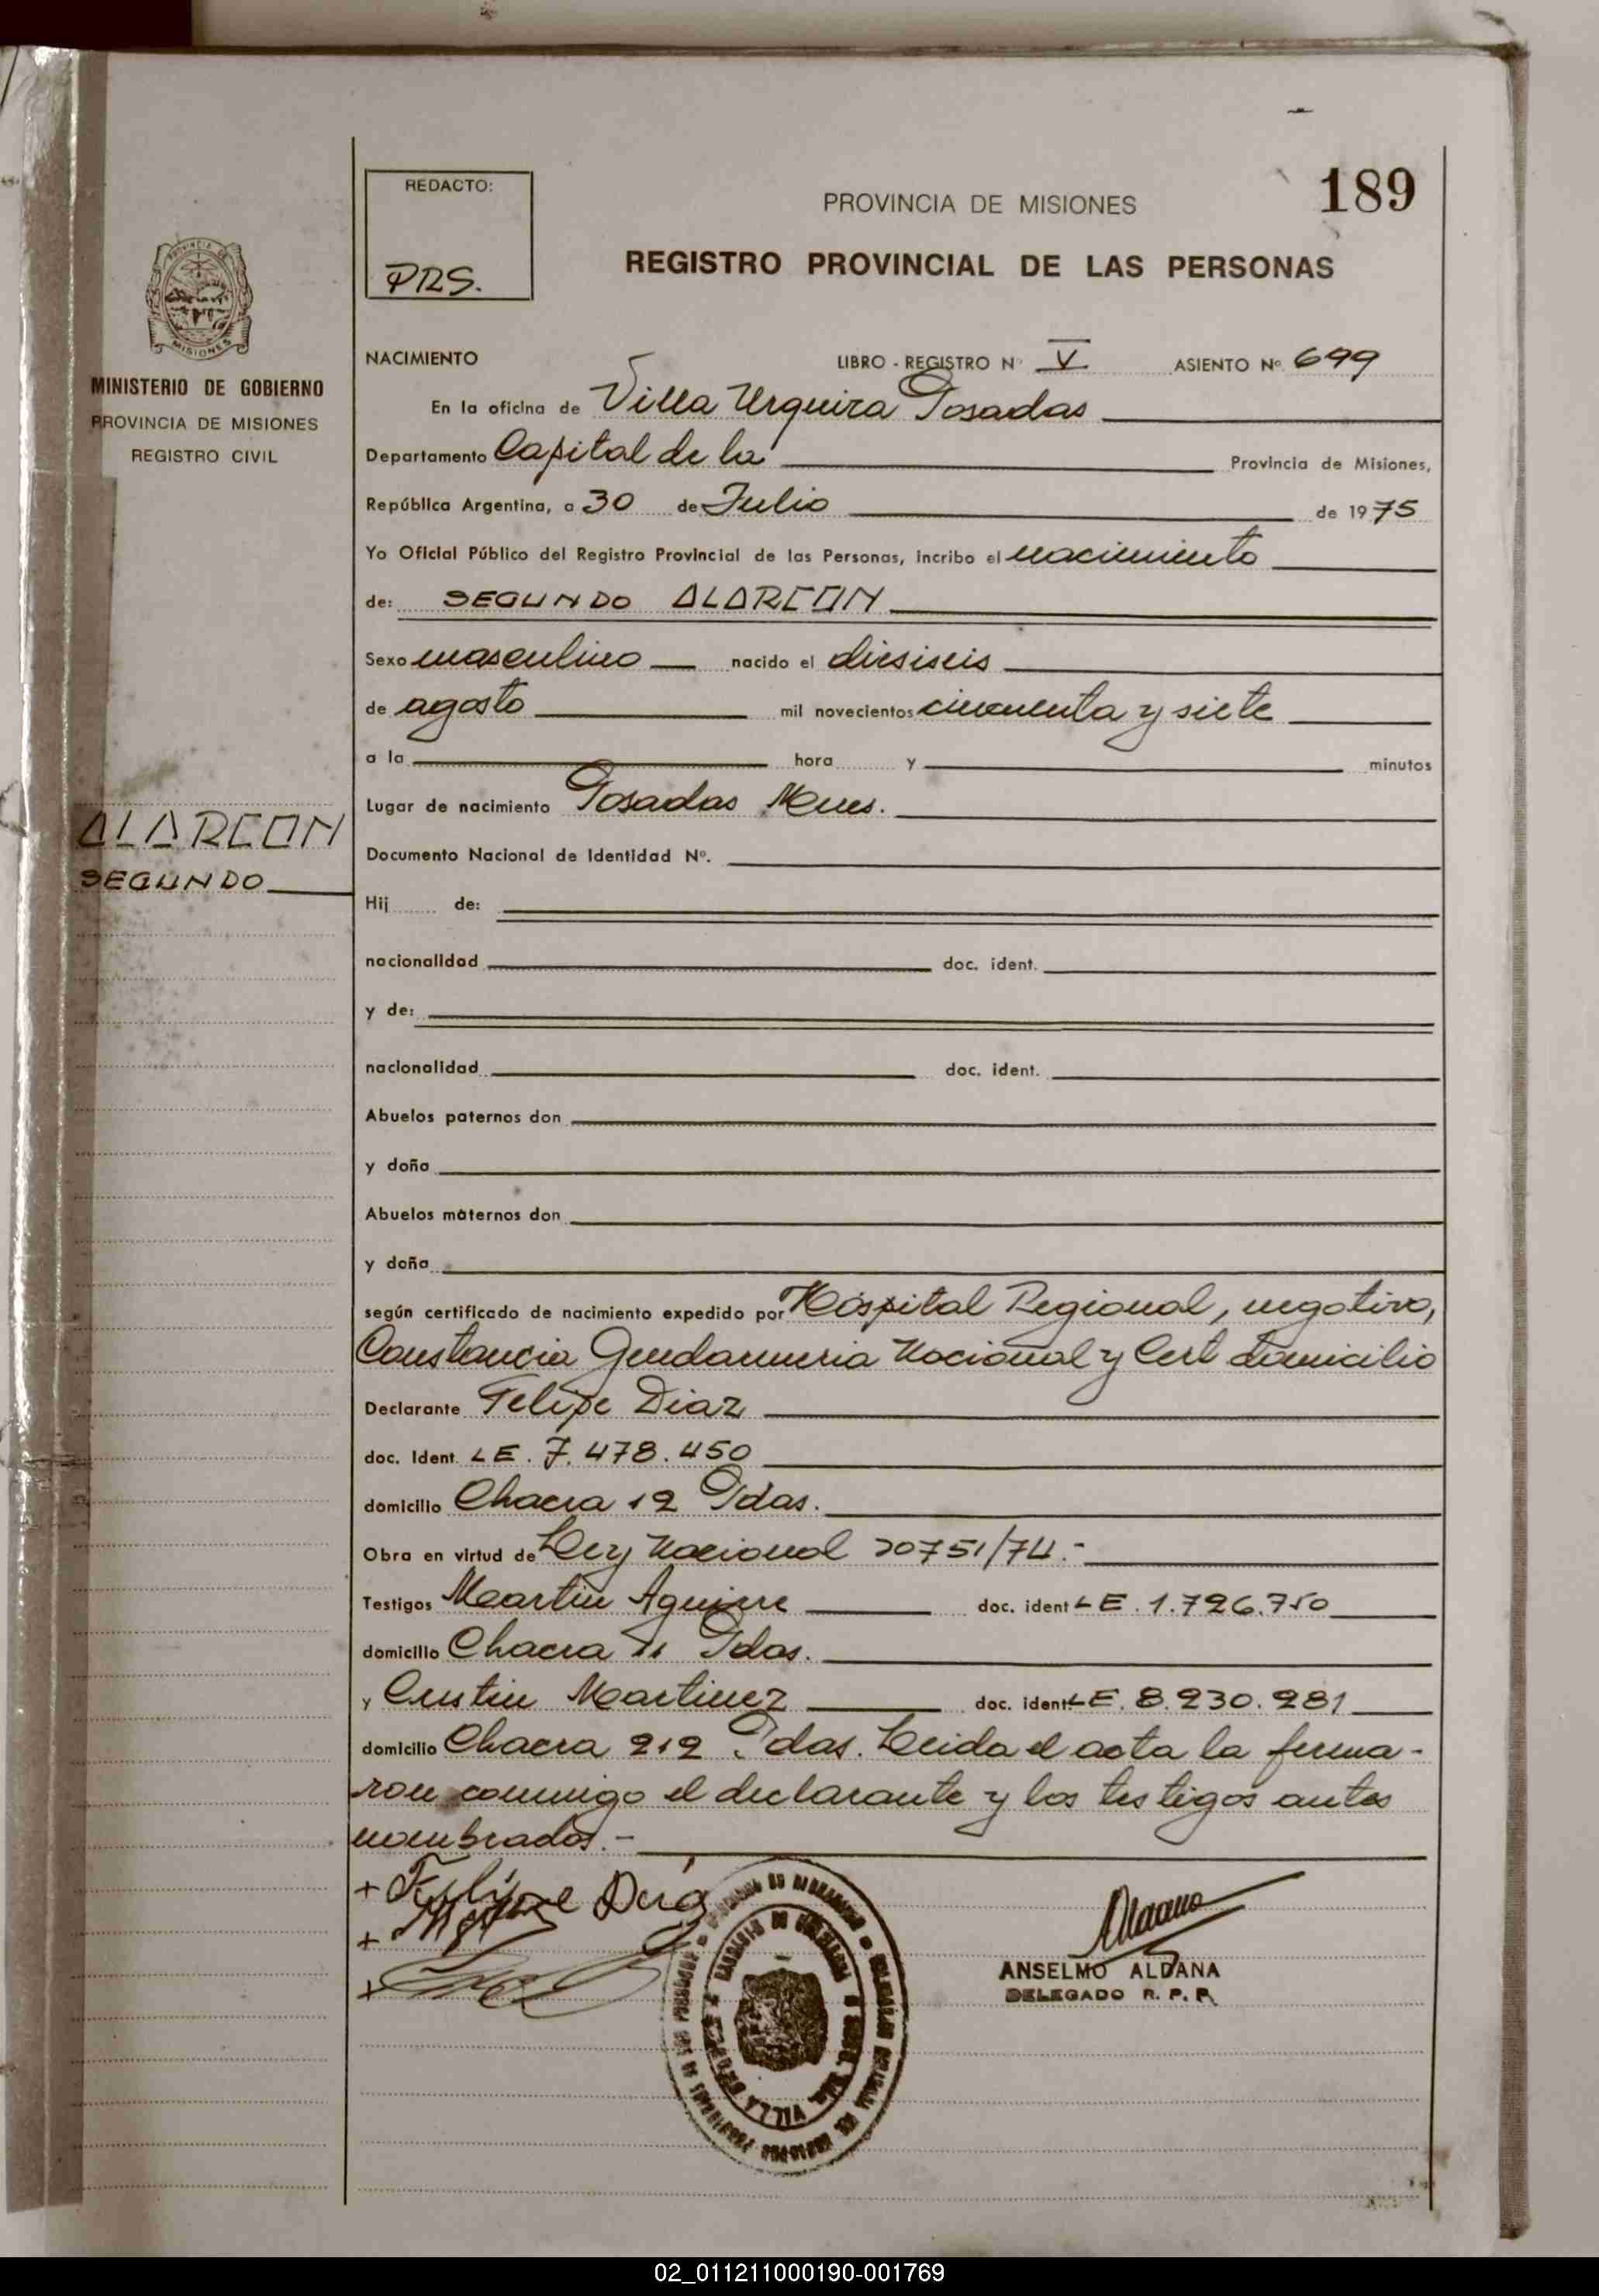 189
REDACTO:
PRS.
PROVINCIA DE MISIONES
REGISTRO PROVINCIAL DE LAS PERSONAS
MISIONES
MINISTERIO DE GOBIERNO
PROVINCIA DE MISIONES
REGISTRO CIVIL
ALARCON
SEGUNDO
NACIMIENTO LIBRO - REGISTRO Nº V ASIENTO Nº 699
En la oficina de Villa Urquiza Posadas
Departamento Capital de la Provincia de Misiones,
República Argentina, a 30 de Julio de 1975
Yo Oficial Público del Registro Provincial de las Personas, incribo el nacimiento
de: SEGUNDO ALARCON
Sexo masculino nacido el diesiseis
de agosto mil novecientos cincuenta y siete
a la hora y minutos
Lugar de nacimiento Posadas Mnes.
Documento Nacional de Identidad Nº.
Hij de:
nacionalidad doc. ident.
y de:
nacionalidad doc. ident.
Abuelos paternos don
y doña
Abuelos maternos don
y doña
según certificado de nacimiento expedido por Hospital Regional, negativo,
Constancia Gendarmeria Nacional y Cert domicilio
Declarante Felipe Diaz
doc. Ident. LE. 7.478.450
domicilio Chacra 12 Pdas.
Obra en virtud de Ley Nacional 20751/74.-
Testigos Martin Aguirre doc. ident LE. 1.726.750
domicilio Chacra 11 Pdas.
y Cristin Martinez doc. ident. LE. 8.230.281
domicilio Chacra 212 Pdas. Leida el acta la firma-
ron conmigo el declarante y los testigos antes
nombrados.-
+ Felipe Diaz
+
+
ANSELMO ALDANA
DELEGADO R. P. P.
VILLA
02_011211000190-001769